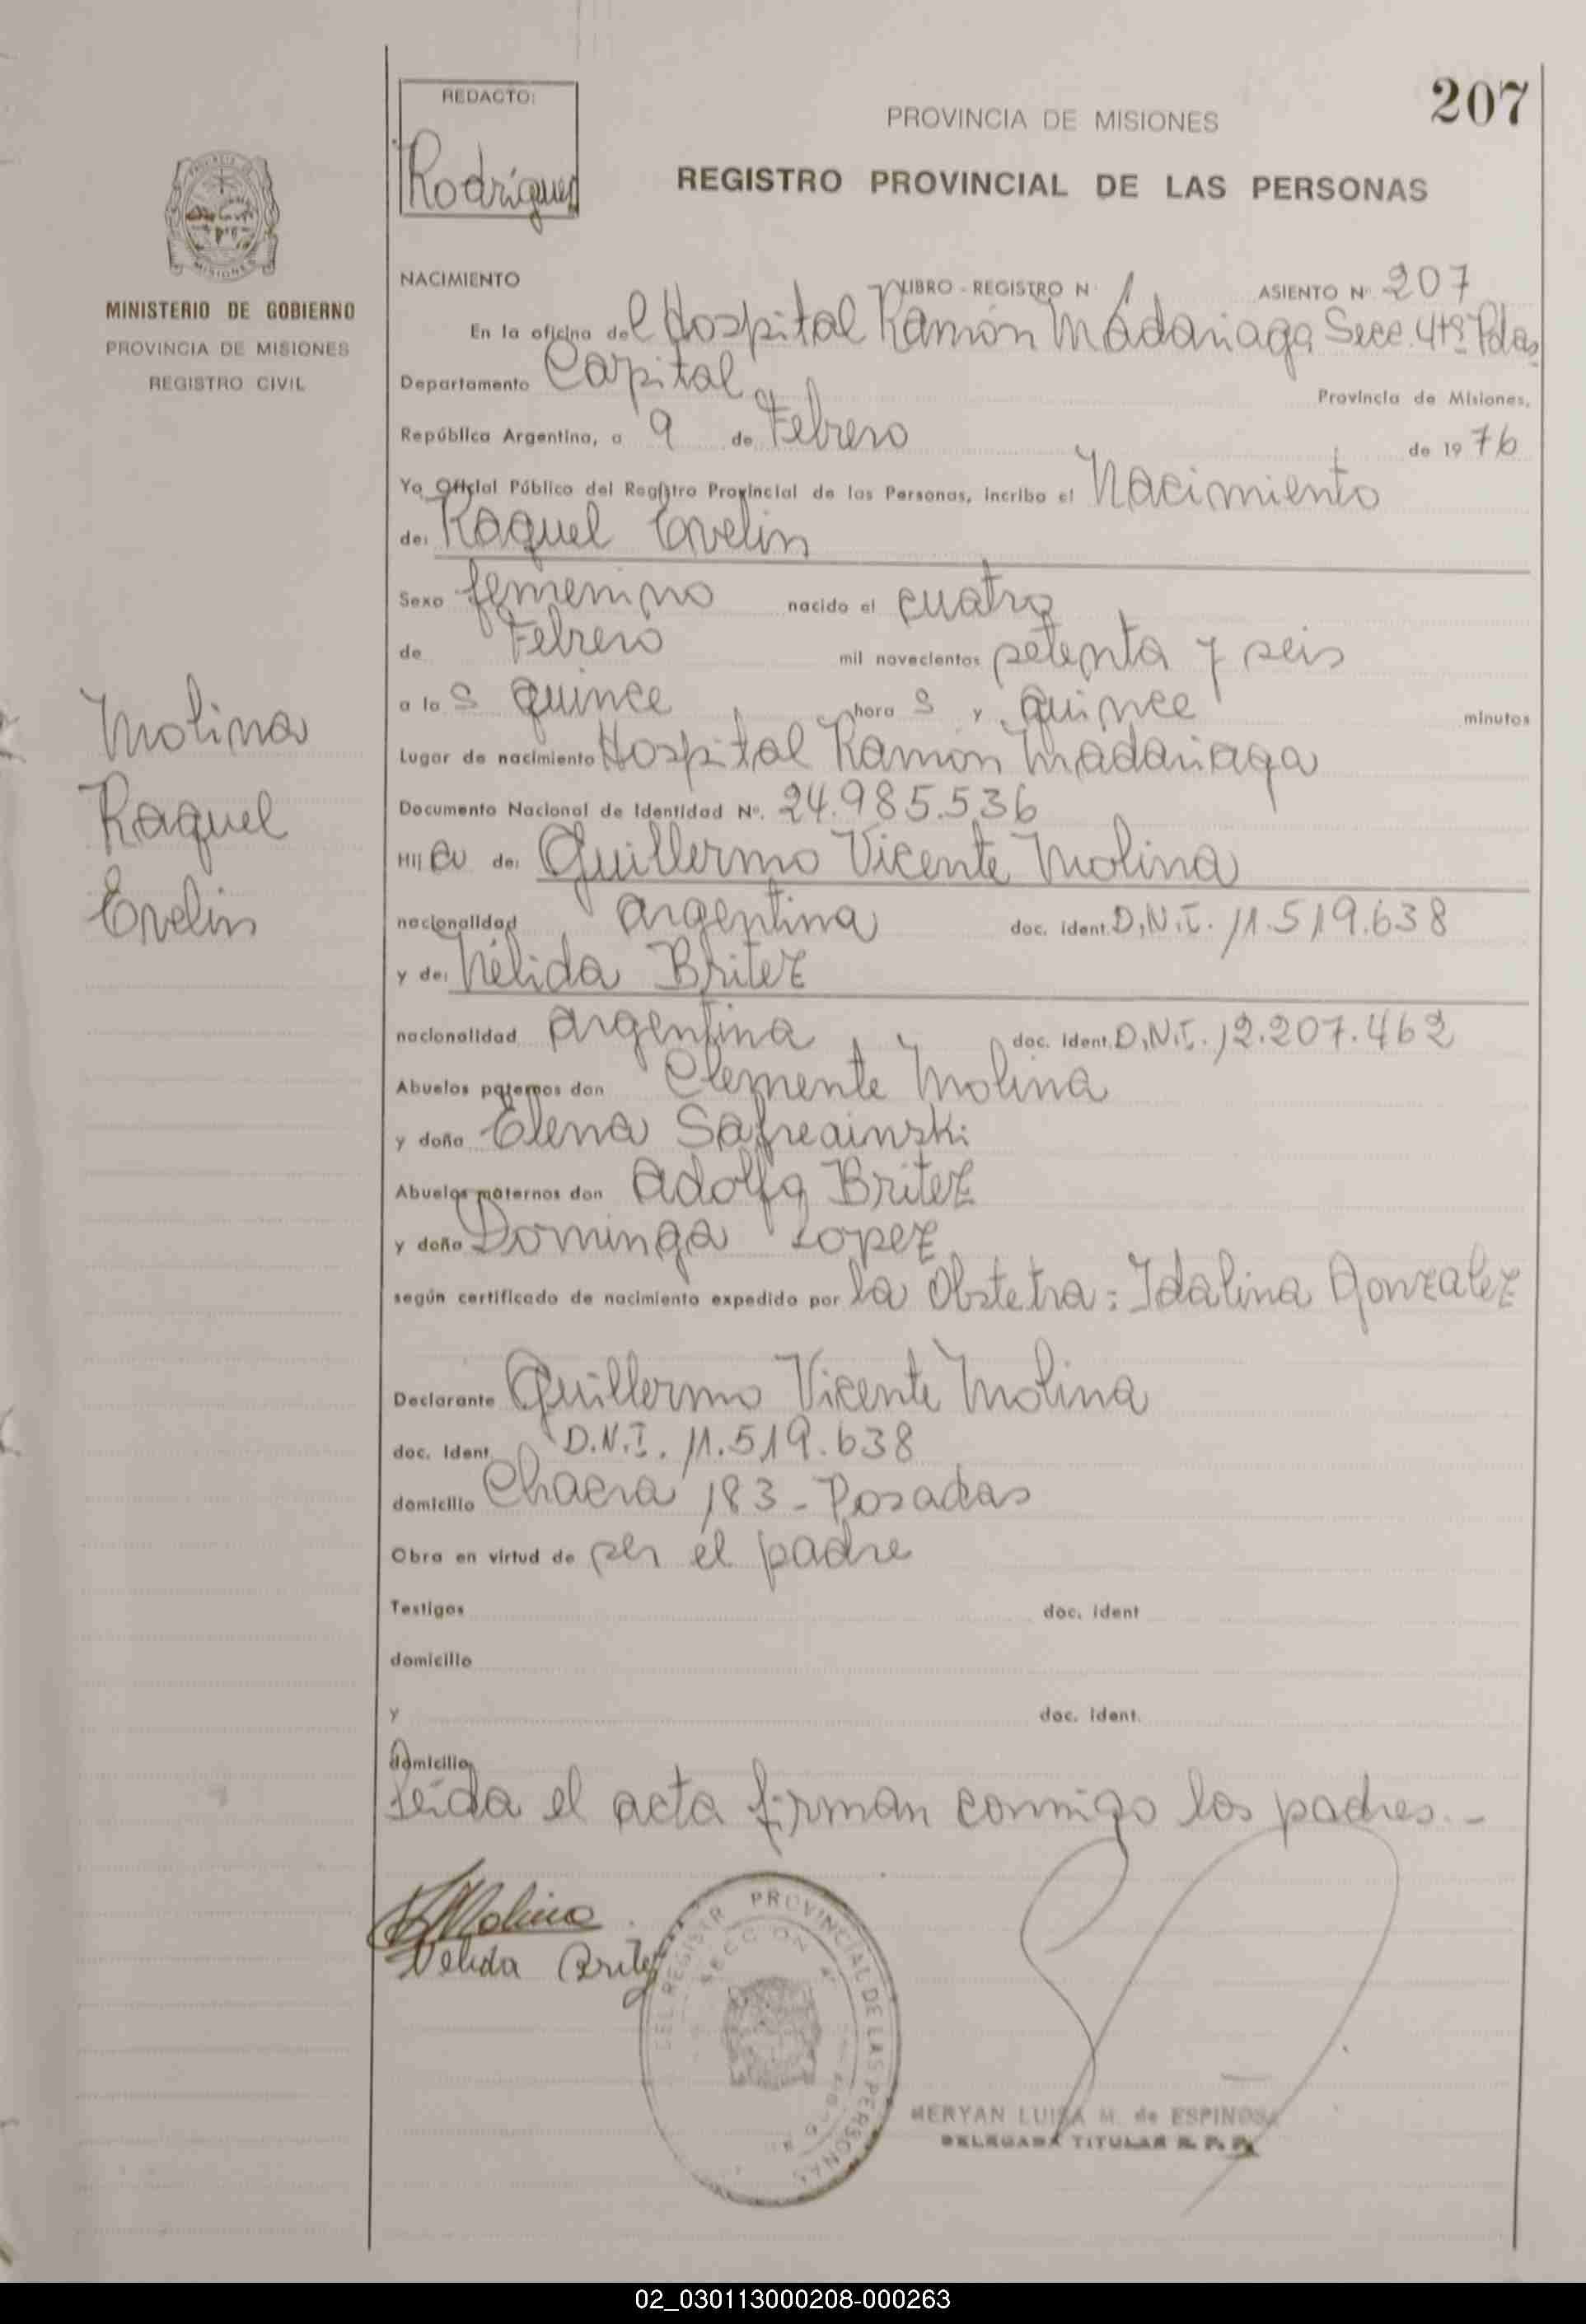 207
REDACTO:
Rodríguez
PROVINCIA DE MISIONES
REGISTRO PROVINCIAL DE LAS PERSONAS
MISIONES
MINISTERIO DE GOBIERNO
PROVINCIA DE MISIONES
REGISTRO CIVIL
Molina
Raquel
Evelin
NACIMIENTO LIBRO - REGISTRO Nº 1 ASIENTO Nº 207
En la oficina del Hospital Ramón Madariaga Secc. 4ta Pdas
Departamento Capital Provincia de Misiones,
República Argentina, a 9 de Febrero de 1976
Yo Oficial Público del Registro Provincial de las Personas, incribo el Nacimiento
de: Raquel Evelin
Sexo femenino nacido el cuatro
de Febrero mil novecientos setenta y seis
a las quince horas y quince minutos
Lugar de nacimiento Hospital Ramón Madariaga
Documento Nacional de Identidad Nº. 24.985.536
Hija de: Guillermo Vicente Molina
nacionalidad argentina doc. ident. D.N.I. 11.519.638
y de: Nélida Britez
nacionalidad argentina doc. ident. D.N.I. 12.207.462
Abuelos paternos don Clemente Molina
y doña Elena Safreainski
Abuelos maternos don Adolfo Britez
y doña Dominga Lopez
según certificado de nacimiento expedido por la Obstetra: Idalina Gonzalez
Declarante Guillermo Vicente Molina
doc. Ident. D.N.I. 11.519.638
domicilio Chacra 183 - Posadas
Obra en virtud de ser el padre
Testigos doc. ident
domicilio
y doc. ident.
domicilio
Leída el acta firman conmigo los padres.-
Molina
Nelida Britez
DEL REGISTR PROVINCIAL DE LAS PERSONAS
SECCION 4
MERYAN LUISA M. de ESPINOSA
DELEGADA TITULAR R. P. P.
02_030113000208-000263